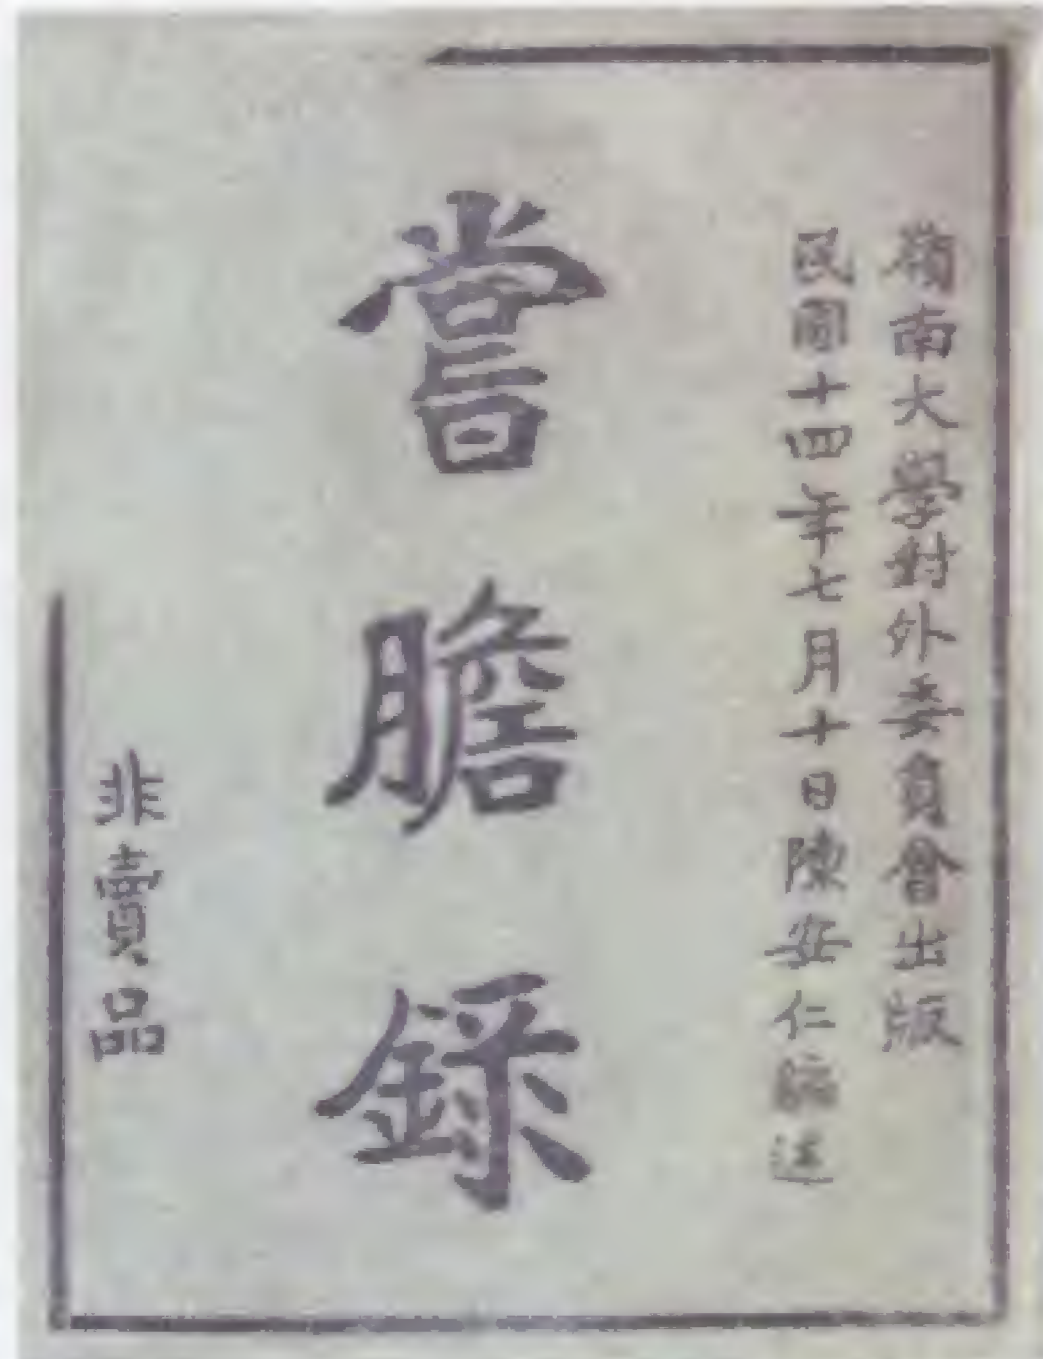 嶺南大學對外委員會出版
民國十四年七月十日陳安仁編述
嘗膽録
非賣品